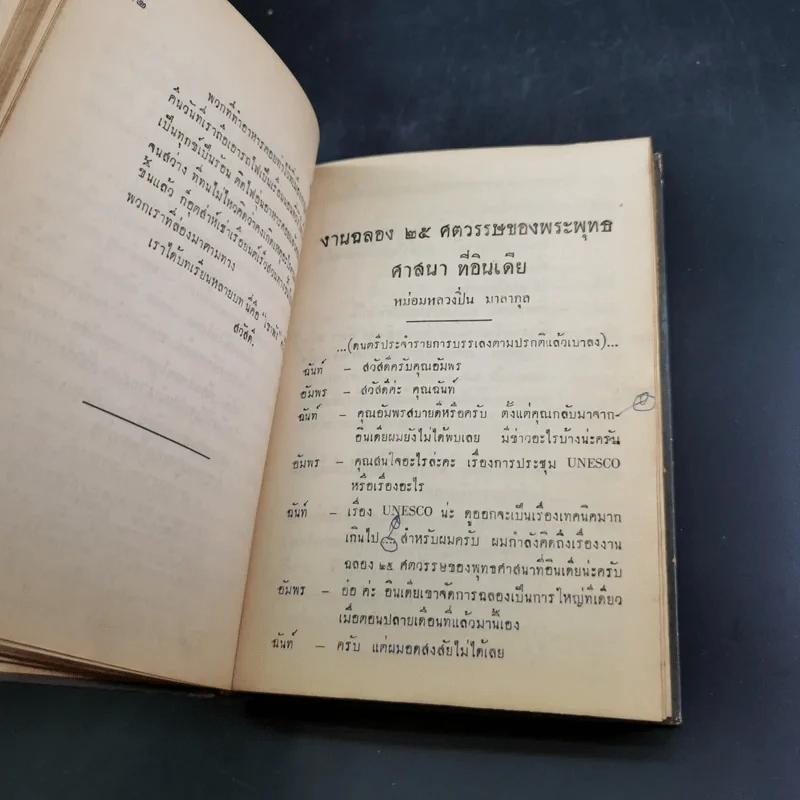 พวกที่ทำอาหารคอยทำ
คืนวันที่เราถือเอารถไฟเป็นเรือนนอน
เป็นทุกข์เป็นร้อน ติดไฟอุ่นอาหารคอย
จนสว่าง ที่ทนไม่ไหวคิดว่าคงเกิดเหตุอะไร
ขึ้นแล้ว ก็อุตส่าห์เช่าเรือยนต์เร็วสวนทาง
พวกเราที่ล่องมาตามทาง
เราได้บทเรียนหลายบท นี่คือ
สวัสดี.
งานฉลอง ๒๕ ศตวรรษของพระพุทธ
ศาสนา ที่อินเดีย
หม่อมหลวงปิ่น มาลากุล
...(ดนตรีประจำรายการบรรเลงตามปรกติแล้วเบาลง)...
ฉันท์ – สวัสดีครับคุณอัมพร
อัมพร – สวัสดีค่ะ คุณฉันท์
ฉันท์ – คุณอัมพรสบายดีหรือครับ ตั้งแต่คุณกลับมาจาก
อินเดียผมยังไม่ได้พบเลย มีข่าวอะไรบ้างน่ะครับ
อัมพร – คุณสนใจอะไรล่ะคะ เรื่องการประชุม UNESCO
หรือเรื่องอะไร
ฉันท์ – เรื่อง UNESCO น่ะ ดูออกจะเป็นเรื่องเทคนิคมาก
เกินไป ... สำหรับผมครับ ผมกำลังคิดถึงเรื่องงาน
ฉลอง ๒๕ ศตวรรษของพุทธศาสนาที่อินเดียน่ะครับ
อัมพร – อ๋อ ค่ะ อินเดียเขาจัดการฉลองเป็นการใหญ่ทีเดียว
เมื่อตอนปลายเดือนที่แล้วมานี้เอง
ฉันท์ – ครับ แต่ผมอดสงสัยไม่ได้เลย